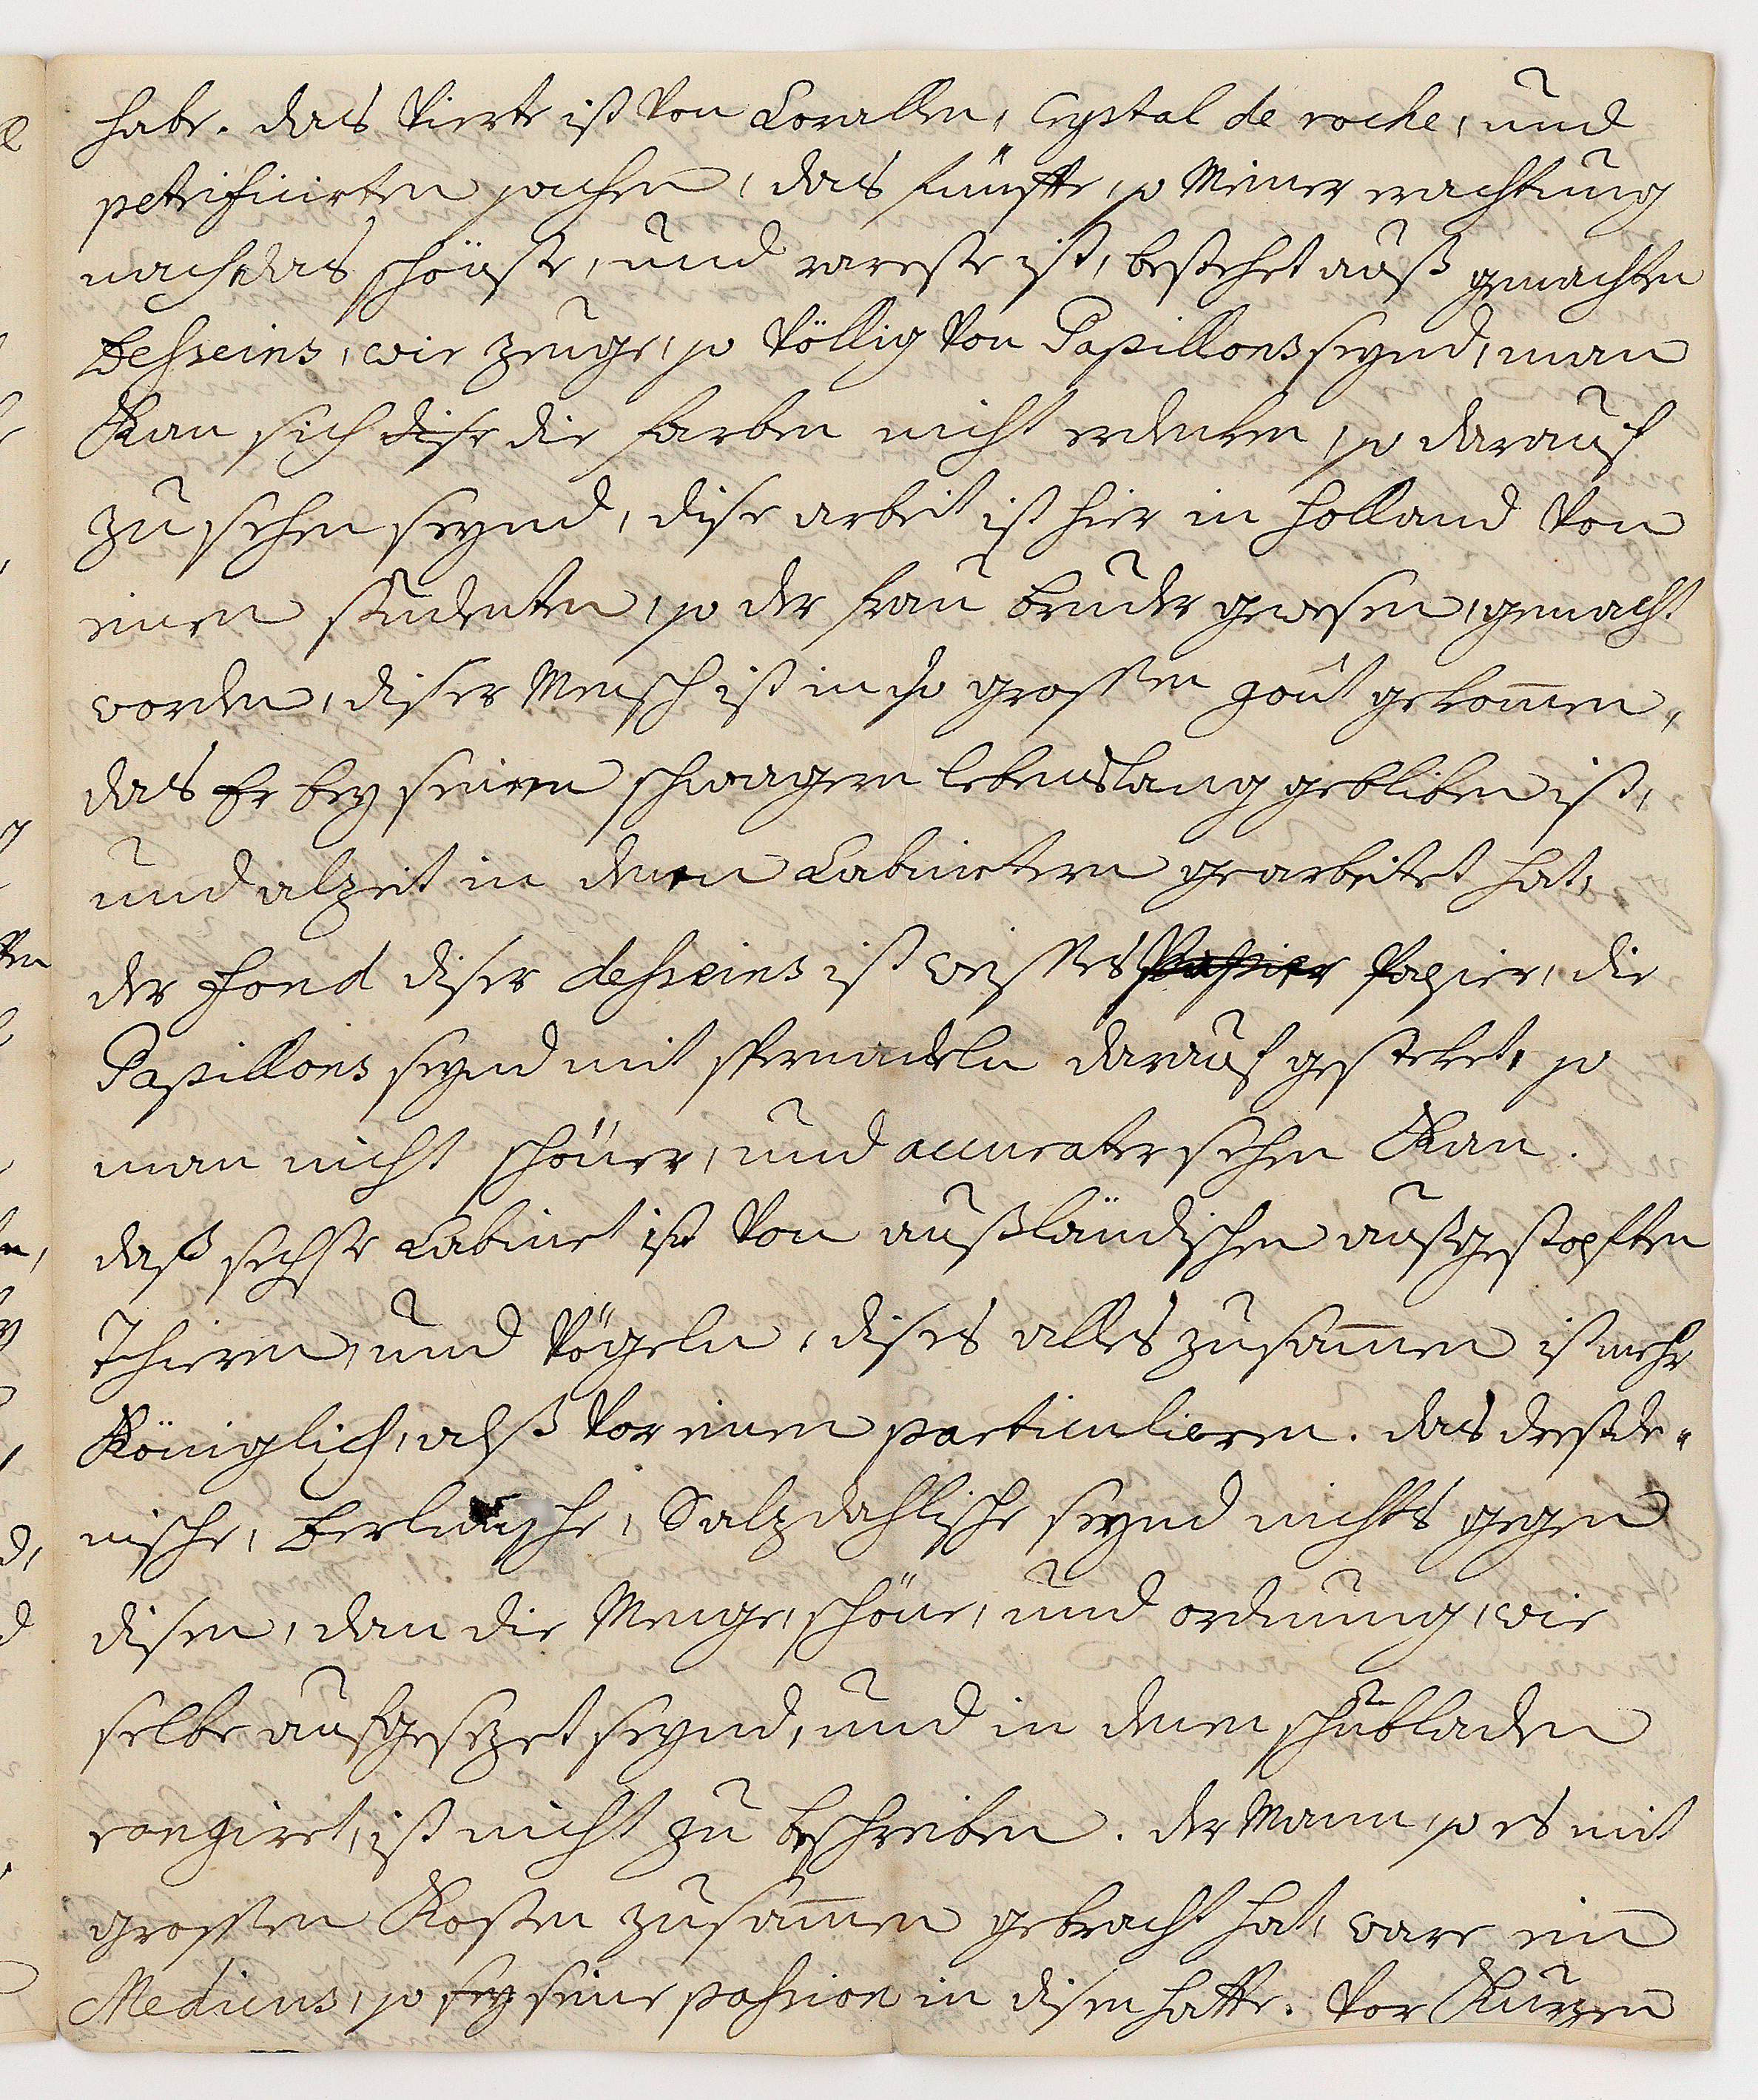 habe. das Vierte ist Von Corallen, Crystal de roche, und
petrificirten sachen, das fünffte, so Meiner erachtung
nach das schönste, und rareste ist, bestehet auß gemachten
Desseins, wie zeuge, so Völlig Von Papillons seynd, man
Kan sich dise die farben nicht erdenken, so darauf
zu sehen seynd, dise arbeit ist hier in Holland Von
einen studenten, so der frau bruder gewesen, gemacht
worden, diser Mensch ist in so grossen goût gekom̄en,
das Er bey seinen schwagern lebenslang gebliben ist,
und alzeit in denen Cabinetern gearbeitet hat,
der Fond diser desseins ist weisses Papier Papier, die
Papillons seynd mit spernadeln darauf gesteket, so
man nicht schöner, und accurater sehen Kan.
daß sechste Cabinet ist Von außländischen außgestopften
Thieren, und Vögeln, dises alles zusam̄en ist mehr
Königlich, alß Vor einen particulieren. das dreßde-
nische, berlinische, Salzdahlische seynd nichts gegen
disen, dan die Menge, schöne, und ordnung, wie
selbe aufgesezet seynd, und in denen schubladen
rangiret, ist nicht zu beschreiben. der Mann, so es mit
grossen Kosten zusam̄en gebracht hat, ware ein
Medicus, so sey seine passion in disen hatte. Vor Kurzen